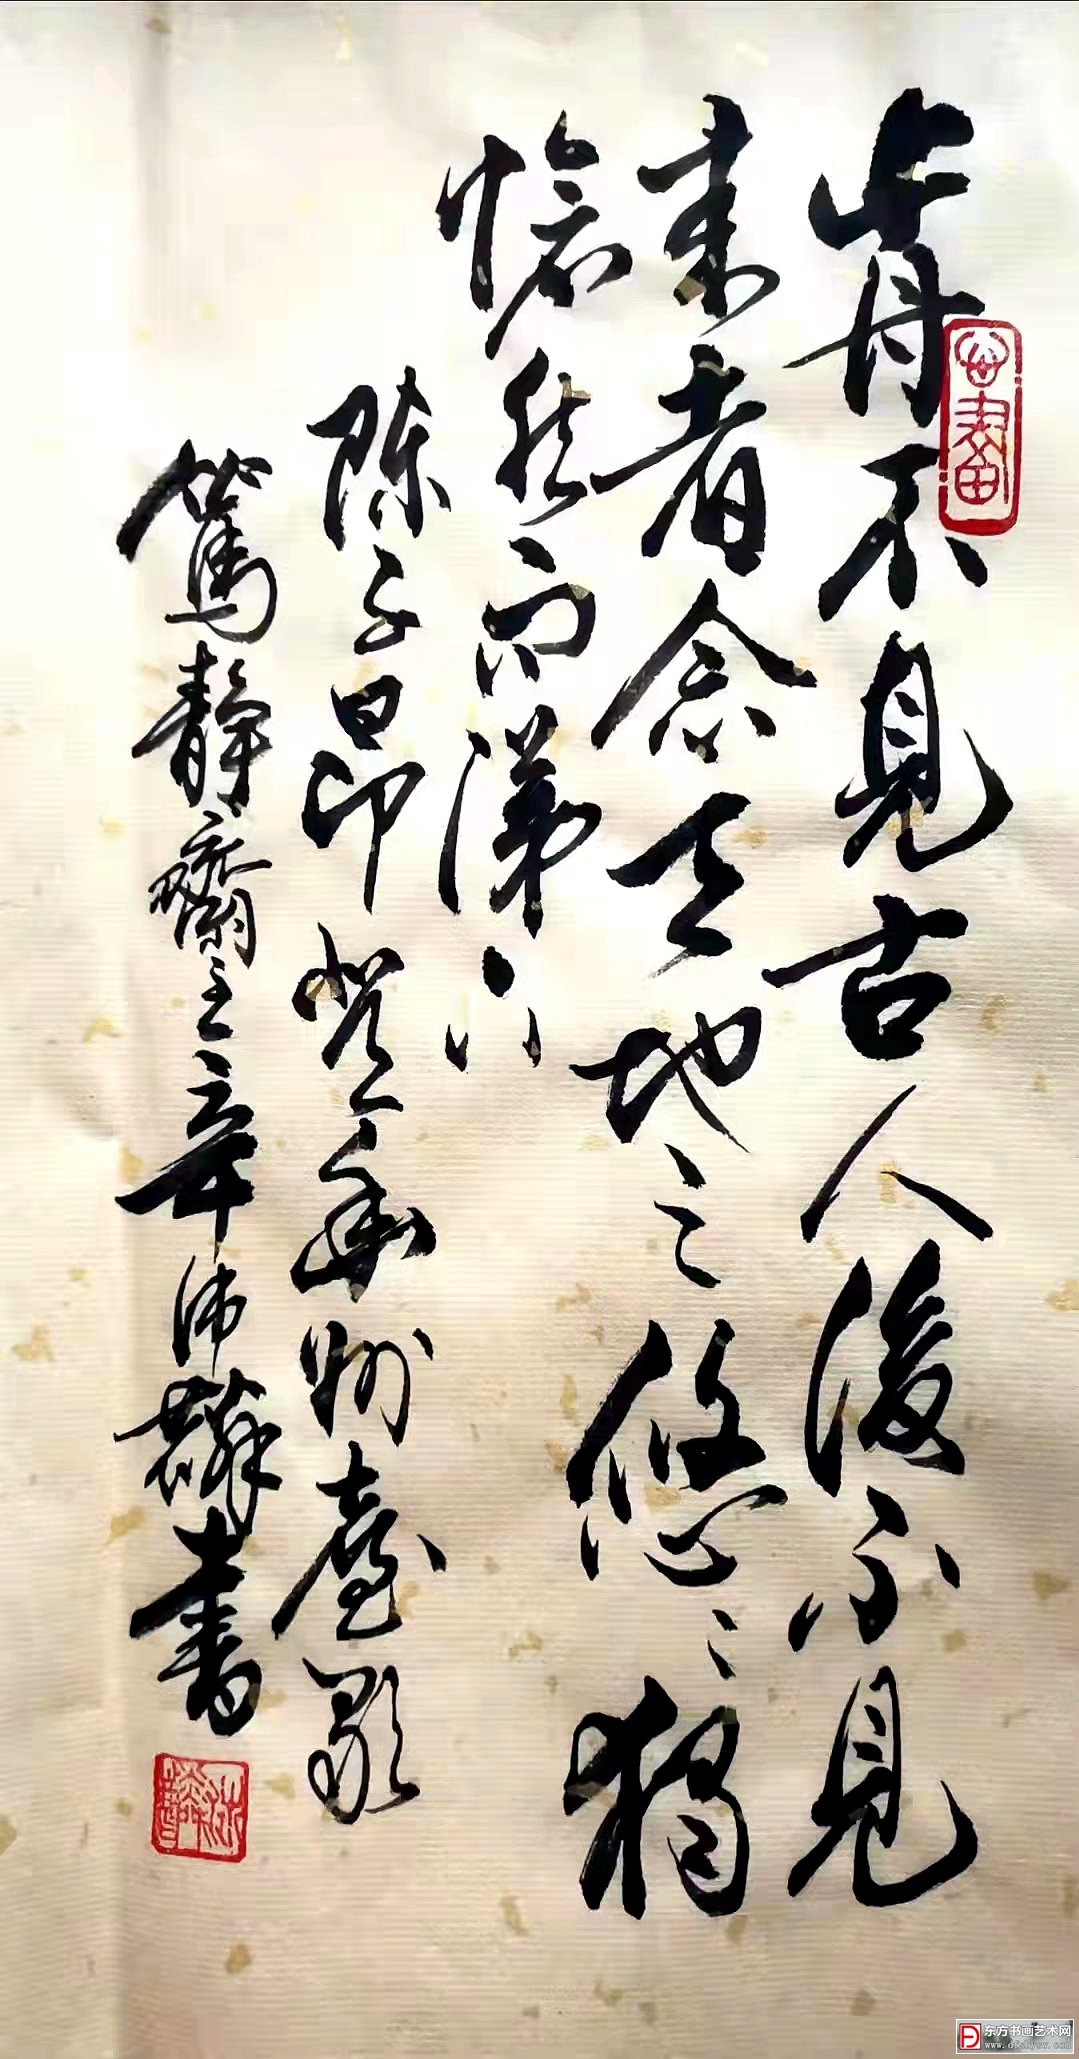 歬不見古人後不見
来者念天地之悠〻獨
愴然而涕下
陳子昂登幽州臺歌
靜齋主章沛書
东方书画艺术网